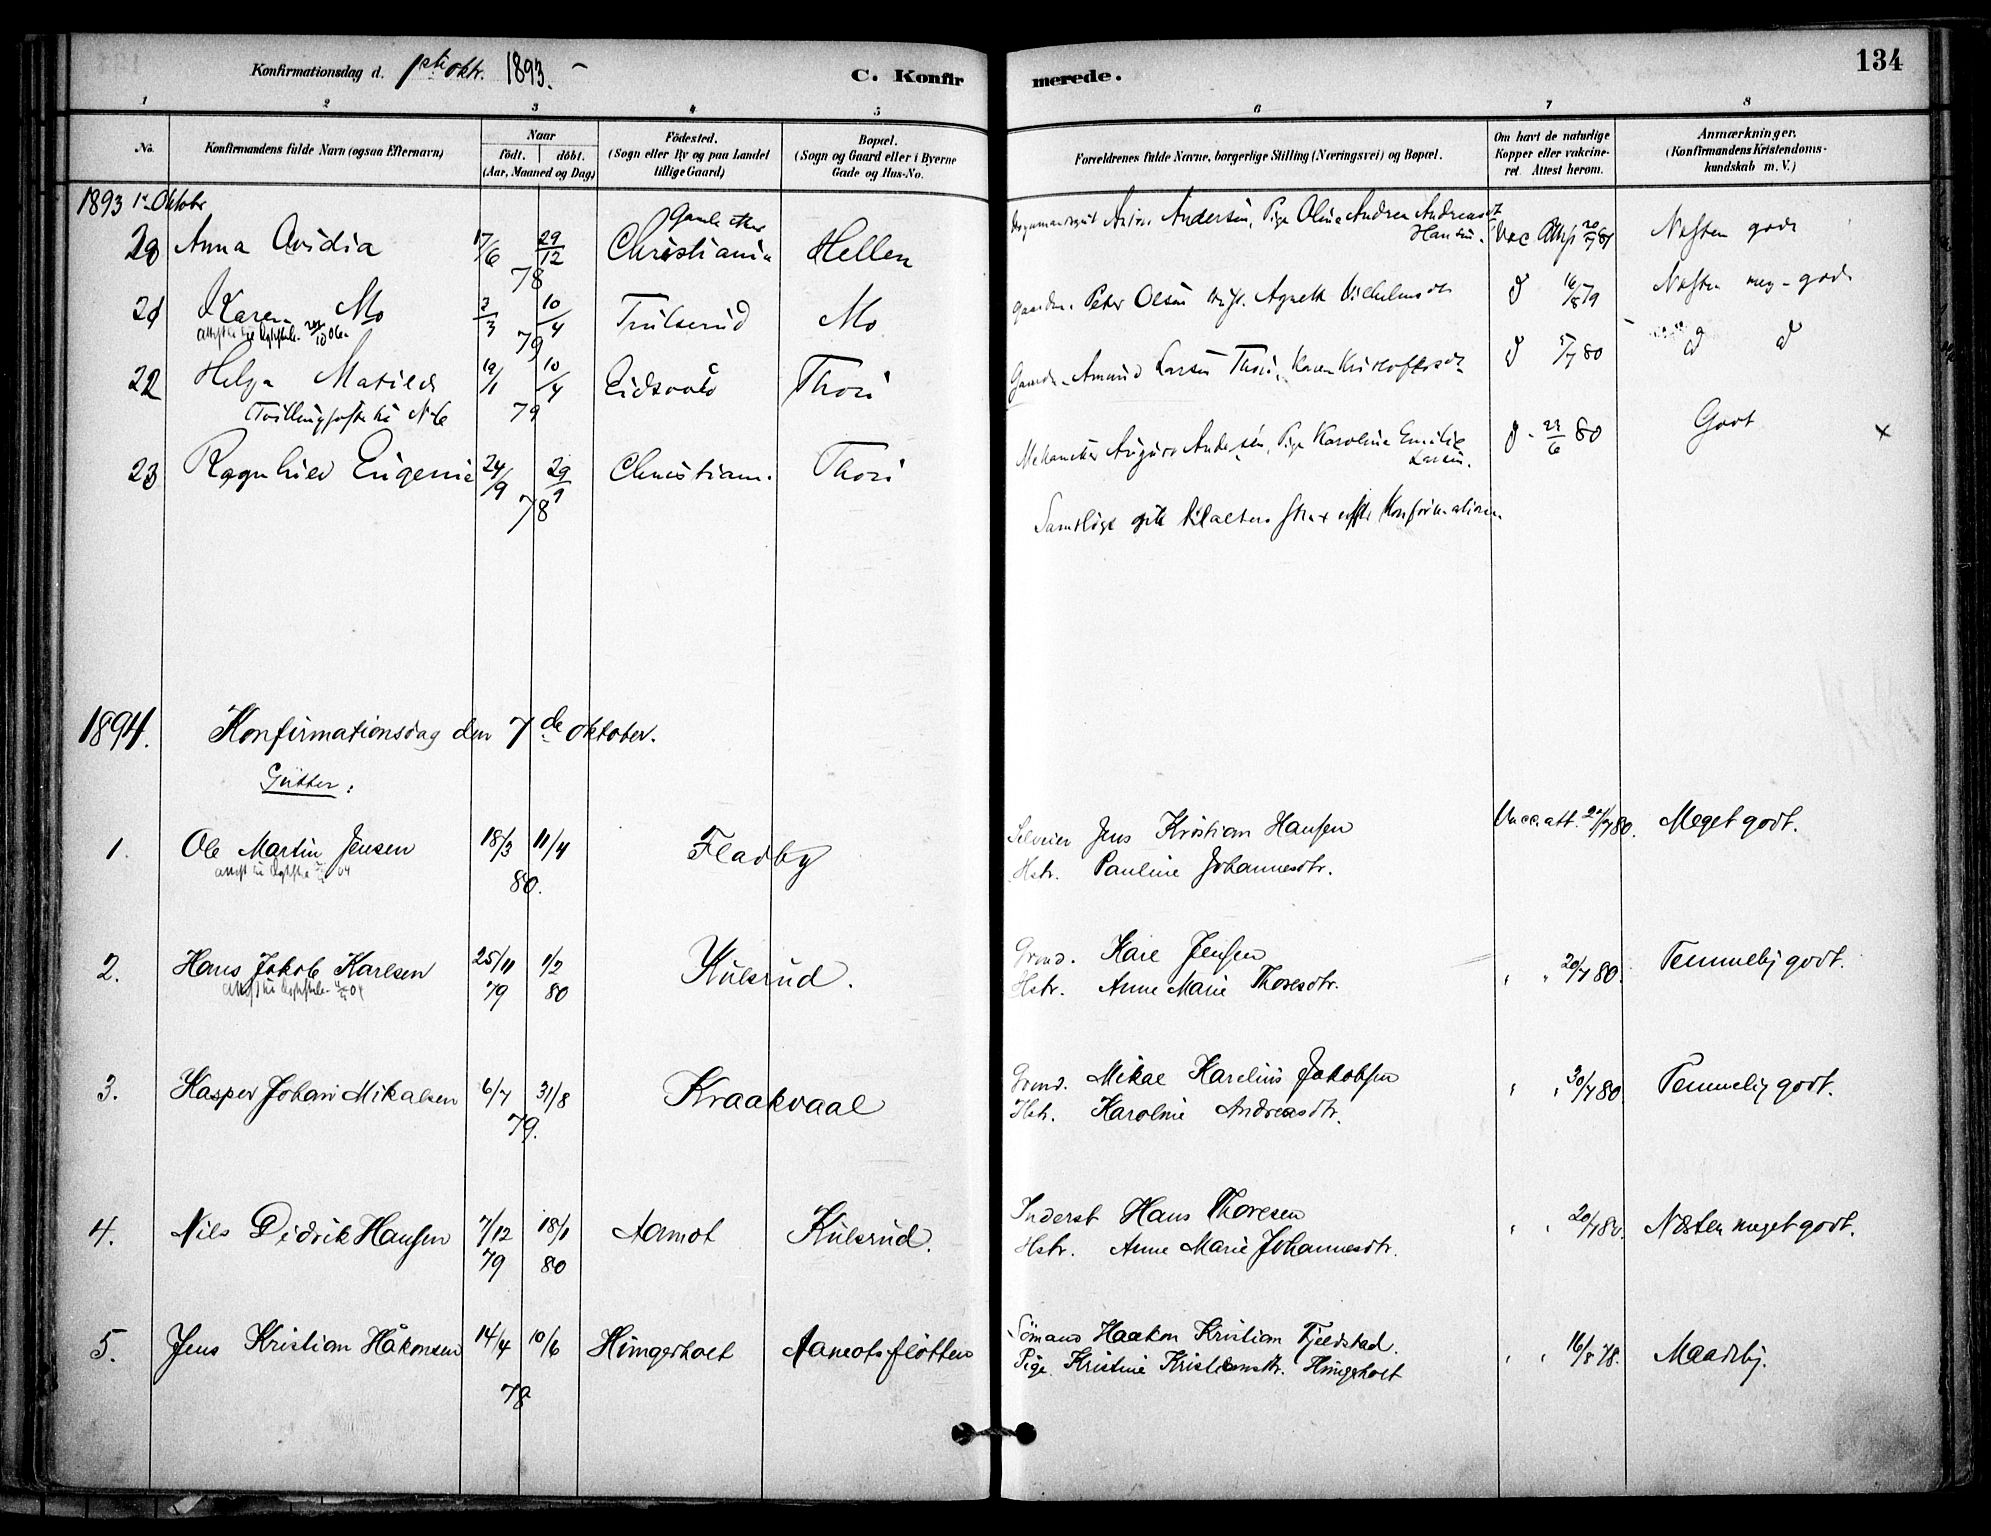 Konfirmationsdag d. 1ste oktr. 1893.
C. Konfirmerede.
134
1 2 3 4 5 6 7 8
No.
Konfirmandens fulde Navn (ogsaa Efternavn)
Naar
födt. döbt.
(Aar, Maaned og Dag)
Födested.
(Sogn eller By og paa Landet
tillige Gaard)
Bopæl.
(Sogn og Gaard eller i Byerne
Gade og Hus-No.
Forældrenes fulde Navne, borgerlige Stilling (Næringsvei) og Bopæl.
Om havt de naturlige
Kopper eller vakcine-
ret. Attest herom.
Anmærkninger.
(Konfirmandens Kristendoms-
kundskab m. V.)
1893 1ste Oktobr
20 Anna Ovidia 17/6 29/12 78 Gamle Aker Christiania Hellen Andersen, Pige Olina Andrea Andreasdt Hansen. Vac Næsten godt
21 Karen Mo 2/3 10/4 79 Trulserud Mo Gaardm. Peter Olsen Agnethe Vilhelmsdt 16/8 79 Næsten meg. godt
22 Helga Matilde 19/1 10/4 79 Eidsvold Thori Gaardm. Amund Larsen Thori, Karen Kristoffersdt 5/7 80 d d
Tvillingsøster til No 6
23 Ragnhild Eugenie 24/9 29/9 78 Christiania. Thori Mekaniker August Andersen, Pige Karoline Emilie Larsen. 23/6 80 Godt x
Samtlige gik til alters strax efter Konfirmationen
1894. Konfirmationsdag den 7de oktober.
Gutter:
1. Ole Martin Jensen 18/3 11/4 80. Fladby Selveier Jens Kristian Hansen Vacc. att. 20/7 80. Meget godt.
Hstr. Pauline Johannesdtr.
2. Hans Jakob Karlsen 25/11 79 1/2 80 Kulsrud. Grmd. Karl Jensen 20/7 80. Temmelig godt.
Hstr. Anne Marie Thoresdtr.
3. Kasper Johan Mikalsen 6/7 31/8 79. Kraakvaal Grmd. Mikal Karelius Jakobsen 30/7 80. Temmelig godt.
Hstr. Karoline Andreasdtr.
4. Nils Didrik Hansen 7/12 79 18/1 80 Aamot Kulsrud. Inderst Hans Thoresen 20/7 80. Næsten meget godt.
Hstr. Anne Marie Johannesdtr.
5. Jens Kristian Håkonsen 14/4 10/6 78 Hungerholt Aamotsfløtten Sömand Haakon Kristian Fjeldstad. 16/8 78. Maadelig.
Pige Kristine Kristiansdtr. Hungerholt